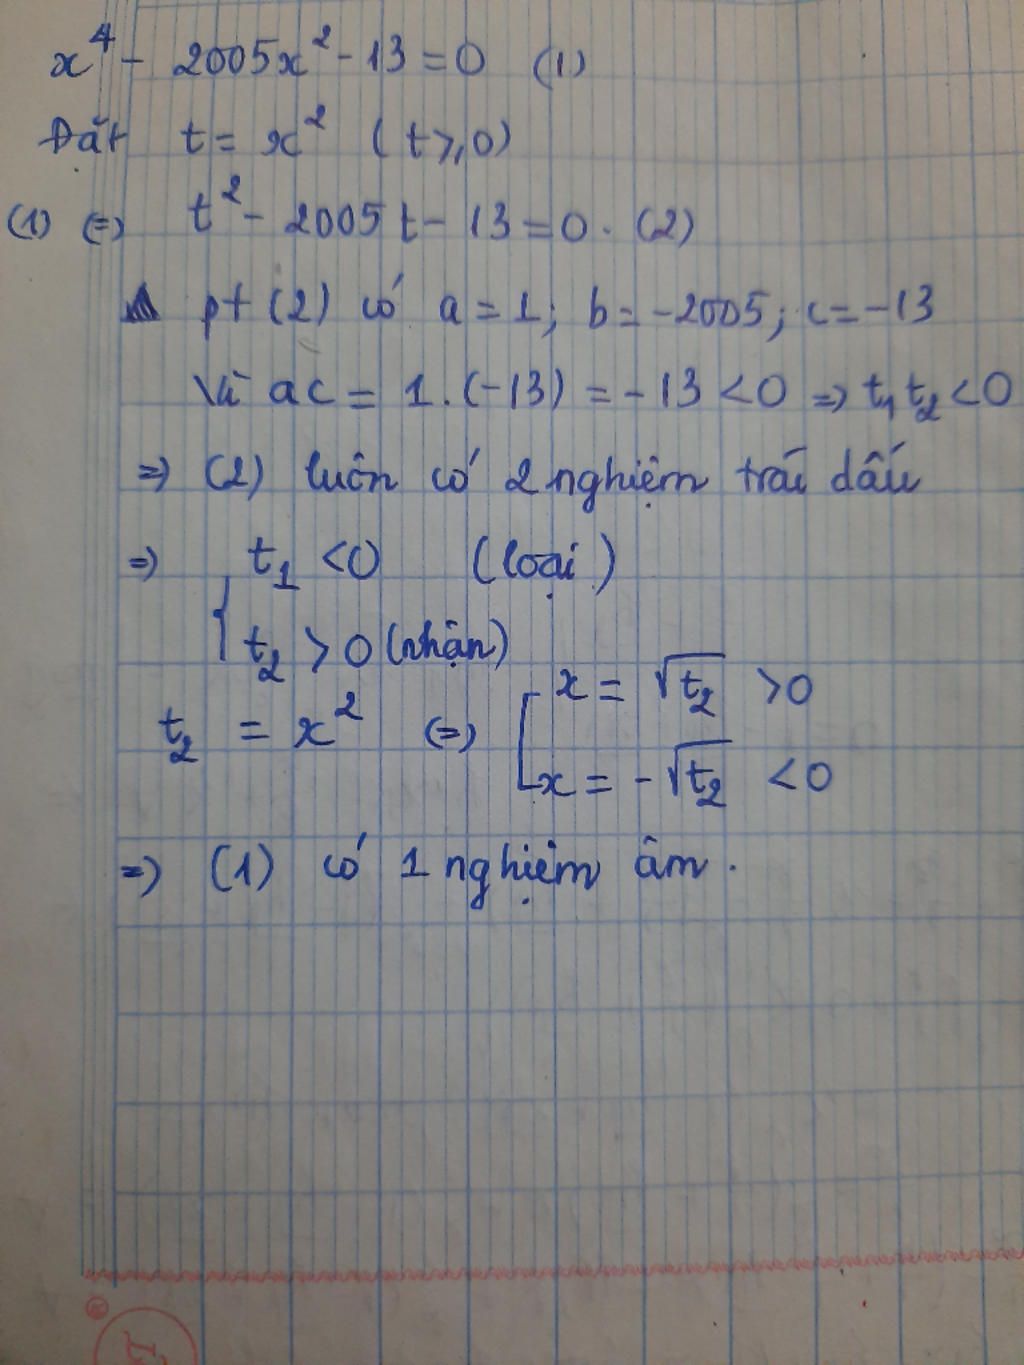 x⁴ - 2005x² - 13 = 0 (1)
Đặt t = x² (t ≥ 0)
(1) ⇔ t² - 2005t - 13 = 0. (2)
pt (2) có a = 1; b = -2005; c = -13
Và ac = 1.(-13) = -13 < 0 ⇒ t₁t₂ < 0
⇒ (2) luôn có 2 nghiệm trái dấu
⇒ { t₁ < 0 (loại)
t₂ > 0 (nhận)
t₂ = x² ⇔ [ x = √t₂ > 0
x = -√t₂ < 0
⇒ (1) có 1 nghiệm âm.